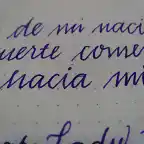 de mi naci
uerte come
hacia mi
Lady